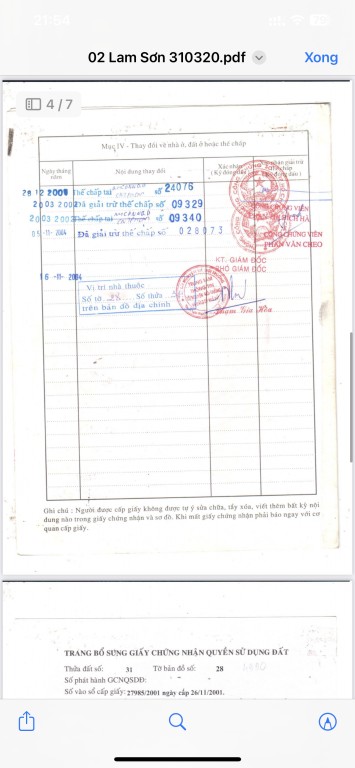 21:54
02 Lam Sơn 310320.pdf
Xong
4/7
Mục IV - Thay đổi về nhà ở, đất ở hoặc thế chấp
Ngày tháng năm
Nội dung thay đổi
Xác nhận
28 12 2001 Thế chấp tại số 24076
20 03 2002 Đã giải trừ thế chấp số 09329
20 03 2002 Thế chấp tại số 09340
05-11-2004 Đã giải trừ thế chấp số 028073
CÔNG CHỨNG VIÊN
PHAN VĂN CHEO
KT. GIÁM ĐỐC
PHÓ GIÁM ĐỐC
16-11-2004
Vị trí nhà thuộc
Số tờ 28 Số thửa
trên bản đồ địa chính
Ghi chú : Người được cấp giấy không được tự ý sửa chữa, tẩy xóa, viết thêm bất kỳ nội
dung nào trong giấy chứng nhận và sơ đồ. Khi mất giấy chứng nhận phải báo ngay với cơ
quan cấp giấy.
TRANG BỔ SUNG GIẤY CHỨNG NHẬN QUYỀN SỬ DỤNG ĐẤT
Thửa đất số: 31 Tờ bản đồ số: 28
Số phát hành GCNQSDĐ: - -
Số vào sổ cấp giấy: 27985/2001 ngày cấp 26/11/2001.